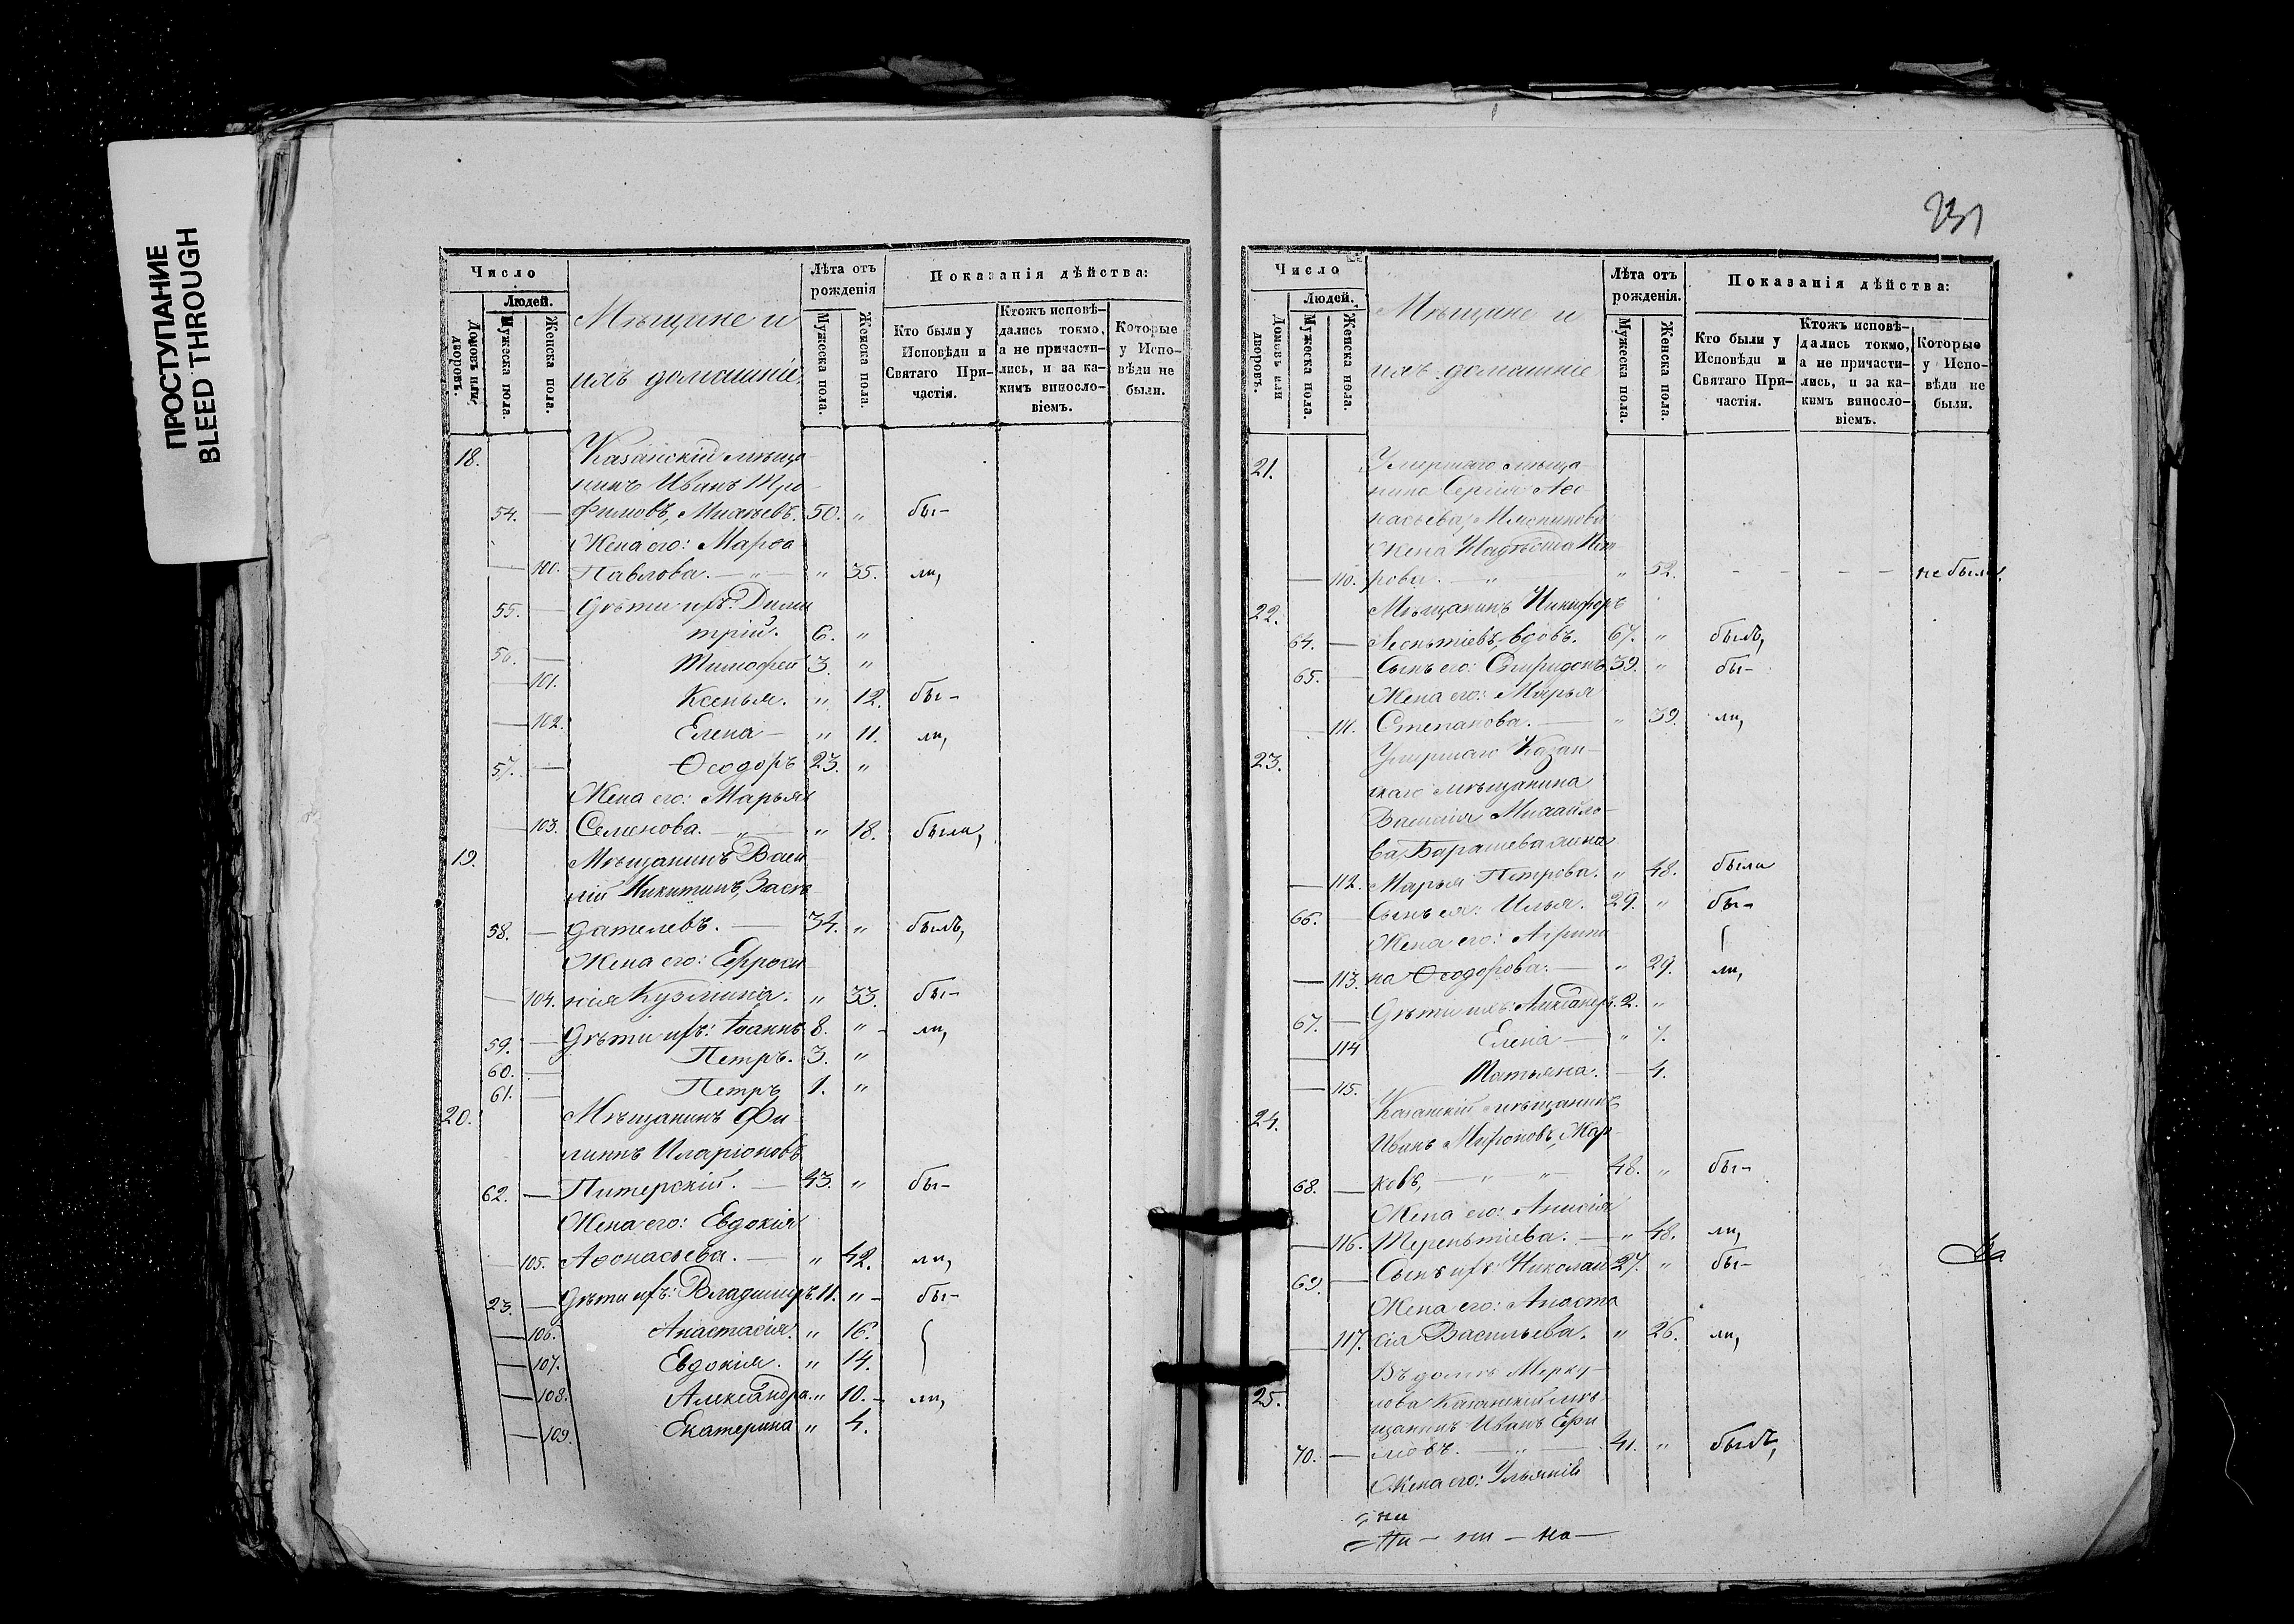 ПРОСТУПАНИЕ
BLEED THROUGH
Число
Людей.
Домовъ или дворовъ.
Мужеска пола.
Женска пола.
Мѣщане и
ихъ домашніе
Лѣта отъ рожденія
Мужеска пола.
Женска пола.
Показанія дѣйства:
Кто были у Исповѣди и Святаго Причастія.
Ктожъ исповѣдались токмо, а не причастились, и за какимъ винословіемъ.
Которые у Исповѣди не были.
18. Казанскій мѣща
нинъ Иванъ Тро
54. — фимовъ, Михѣевъ. 50. „ бы-
Жена его: Марѳа
— 100. Павлова. — „ — „ 35. ли,
55. — Дѣти ихъ: Дими
трій. 6. „
56. — Тимофей 3. „
— 101. Ксенья. „ 12. бы-
— 102. Елена — „ 11. ли,
57. — Ѳеодоръ 23. „
Жена его: Марья
— 103. Семенова. — „ — „ 18. были,
19. Мѣщанинъ Васи
лій Никитинъ, Засѣ
58. — дателевъ. — 34. „ былъ,
Жена его: Ефроси
— 104. нія Кузмина. „ 33. бы-
59. — Дѣти ихъ: Іоаннъ 8. „ - ли,
60. — Петръ. 3. „
61. — Петръ 1. „
20. Мѣщанинъ Фи
липпъ Иларіоновъ
62. — Питерскій. — 43. „ бы-
Жена его: Евдокія
105. Аѳонасьева. — „ 42. ли,
23. — Дѣти ихъ: Владиміръ 11. „ - бы-
— 106. Анастасія. „ 16.
— 107. Евдокія. „ 14.
— 108. Александра. „ 10. - ли,
— 109. Екатерина „ 4.
231
Число
Людей.
Домовъ или дворовъ.
Мужеска пола.
Женска пола.
Мѣщане и
ихъ домашніе
Лѣта отъ рожденія.
Мужеска пола.
Женска пола.
Показанія дѣйства:
Кто были у Исповѣди и Святаго Причастія.
Ктожъ исповѣдались токмо, а не причастились, и за какимъ винословіемъ.
Которые у Исповѣди не были.
21. Умершаго мѣща
нина Сергія Аѳо
насьева, Мясникова
Жена Надѣжда Пет
— 110. рова. — „ „ 52. - - - - не была.
22. Мѣщанинъ Никифоръ
64. — Леонтіевъ, вдовъ. 67. „ былъ,
65. — Сынъ его: Спиридонъ 39. „ бы-
Жена его: Марья
— 111. Степанова. — „ 39. ли,
23. Умершаго Казан-
скаго мѣщанина
Василія Михайло-
ва, Барашева жена
— 112. Марья Петрова. „ 48. была
66. — Сынъ ея: Илья. 29. „ бы-
Жена его: Агрипи
— 113. на Ѳеодорова. — „ 29. ли,
67. — Дѣти ихъ: Александръ. 2. „
— 114 Елена — „ 7.
— 115. Татьяна. — 4.
24. Казанскій мѣщанинъ
Иванъ Мироновъ, Жар
68. — ковъ, — „ „ — 48. „ бы-
Жена его: Анисія
— 116. Терентіева. — „ 48. ли,
69. — Сынъ ихъ: Николай 27. „ бы-
Жена его: Анаста
— 117. сія Васильева. „ 26. ли,
25. Въ домѣ Мерку
лова Казанскій мѣ
щанинъ Иванъ Ефи
70. — мовъ. — „ — 41. „ былъ,
Жена его: Ульянія